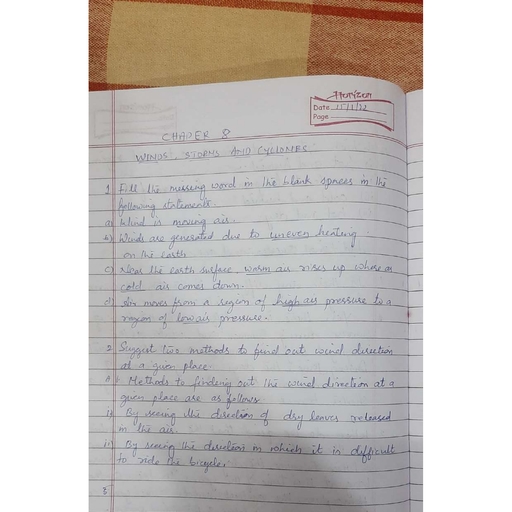 Horizon
Date 15/1/22
Page
CHAPER 8
WINDS, STORMS AND CYCLONES
1 Fill the missing word in the blank spaces in the
following statements.
a) Wind is moving air.
b) Winds are generated due to uneven heating
on the earth
c) Near the earth surface warm air rises up where as
cold air comes down.
d) Air moves from a region of high air pressure to a
region of low air pressure.
2. Suggest two methods to find out wind direction
at a given place.
A. Methods to findering out the wind direction at a
given place are as follows
i) By seeing the direction of dry leaves released
in the air.
ii) By seeing the direction in which it in difficult
to ride the bicycle.
3